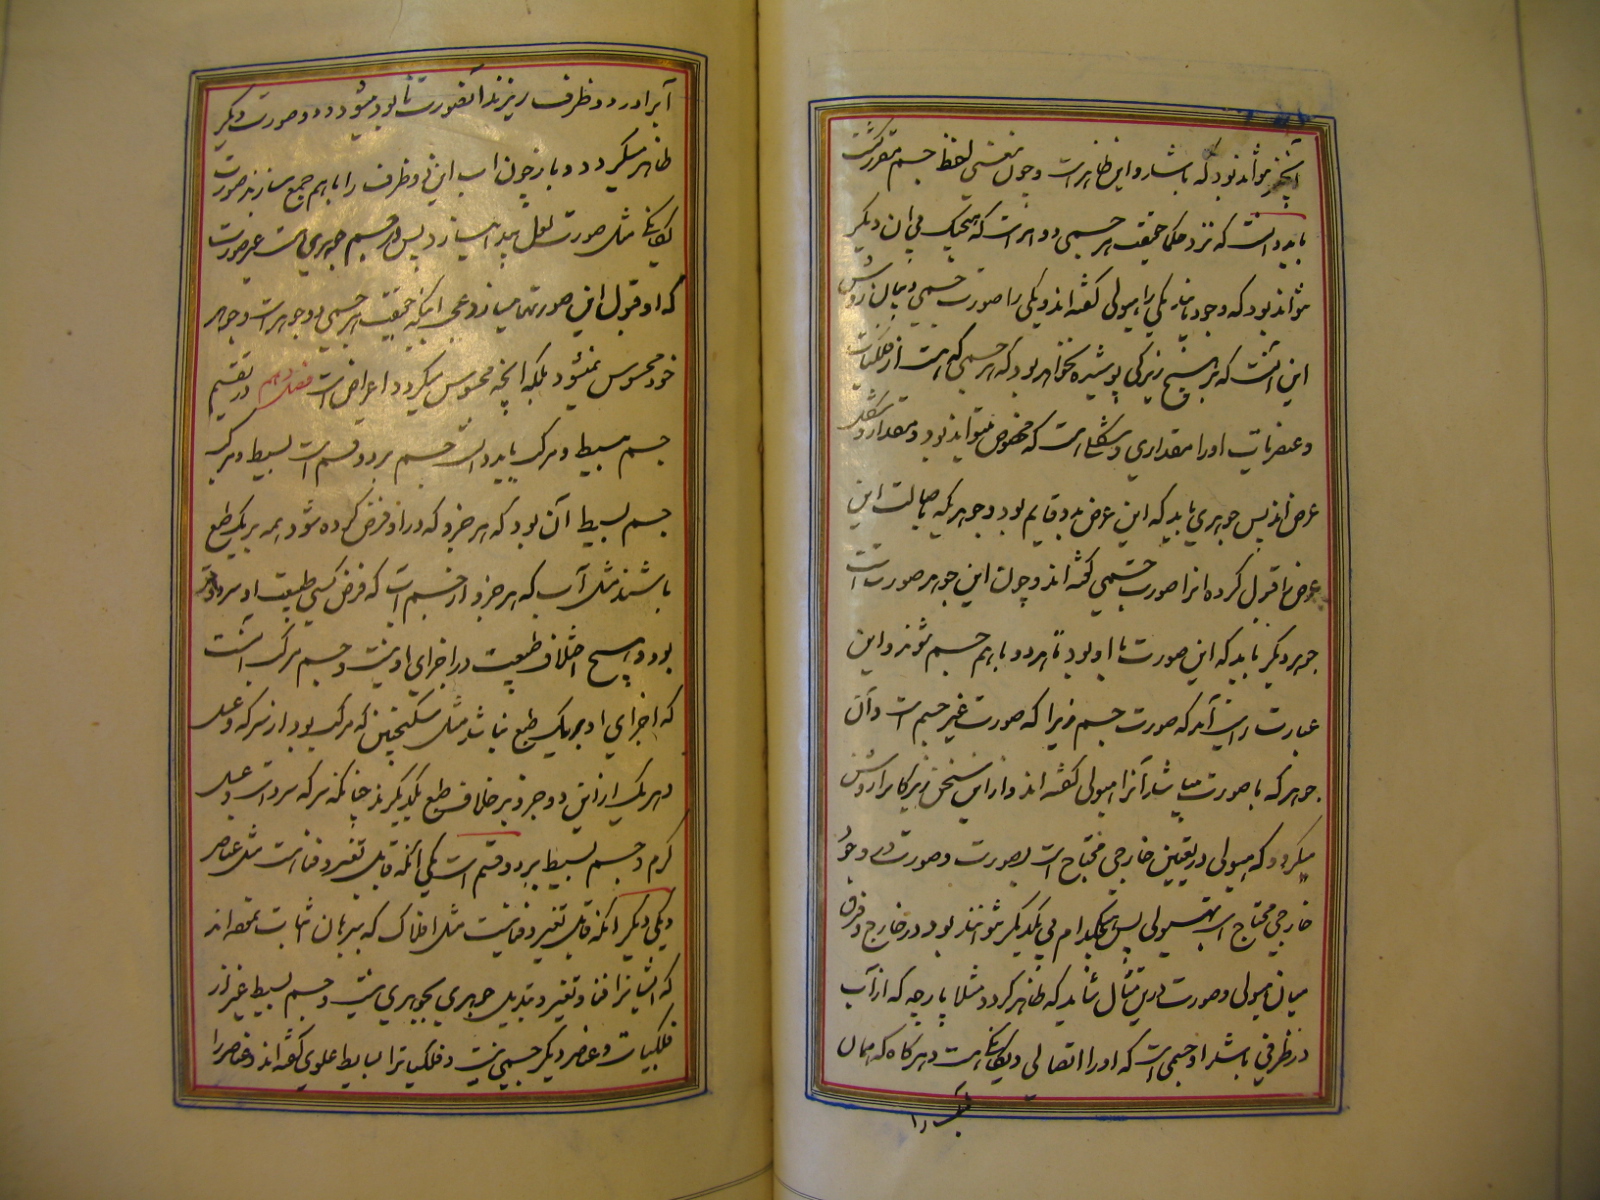 آنچیز تواند بود که باشد و این ظاهر است و چون معنی لفظ جسم مقرر گشت
باید دانست که نزد حکما حقیقت هر جسمی دو امر است که هیچیک بی آن دیگر
نتواند بود که وجود یابد یکی را هیولی گفته اند و یکی را صورت جسمی و بیان روشن
این آنست که بر هیچ زیرکی پوشیده نخواهد بود که هر جسمی که هست از فلکیات
و عنصریات او را مقداری و شکلی است که مخصوص میتواند بود و مقدار و شکل
عرض اند پس جوهری باید که این عرض بدو قایم بود و جوهریکه باصالت این
عرض را قبول کرده انرا صورت جسمی گفته اند و چون این جوهر صورت است
جوهر دیگر باید که این صورت با او بود تا هر دو باهم جسم شوند و این
عبارت راست آید که صورت جسم زیرا که صورت غیر جسم است و آن
جوهر که با صورت میباشد آنرا هیولی گفته اند و از این سخن زیرکانرا روشن
میگردد که هیولی در تعیین خارجی محتاج است بصورت و صورت در وجود
خارجی محتاج است بهیولی پس هیچکدام بی یکدیگر نتوانند بود در خارج و فرق
میان هیولی و صورت درین مثال شاید که ظاهر گردد مثلا پارچه که از آب
در ظرفی باشد او جسمی است که او را اتصالی و یگانگی است و هرگاه که همان
آب را
آبرا در دو ظرف ریزند آنصورت نابود میشود و دو صورت دیگر
ظاهر میگردد و باز چون اب این دو ظرف را باهم جمع سازند صورت
یگانگی مثل صورت اول پیدا میسازد پس در جسم جوهری هست غیر صورت
که او قبول این صورتها میسازد و عجب اینکه حقیقت هر جسمی دو جوهر است و جوهر
خود محسوس نمیشود بلکه انچه محسوس میگردد اعراض است فصل دهم در تقسیم
جسم ببسیط و مرکب باید دانست جسم بر دو قسم است بسیط و مرکب
جسم بسیط آن بود که هر جزو که در او فرض کرده شود همه بر یک طبع
باشند مثل آب که هر جزو از جسم است که فرض کنی طبیعت او سرد و تر
بود و هیچ اختلاف طبیعت در اجزای او نیست و جسم مرکب آنست
که اجزای او بر یک طبع نباشد مثل سکنجبین که مرکب بود از سرکه و عسل
و هر یک از این دو جزو بر خلاف طبع یکدیگرند چنانکه سرکه سرد است و عسل
گرم و جسم بسیط بر دو قسم است یکی آنکه قابل تغیر و فنا است مثل عناصر
و یکی دیگر آنکه قابل تغیر و فنا نیست مثل افلاک که ببرهان اثبات نموده اند
که ایشانرا فنا و تغیر و تبدیل جوهری بجوهری نیست و جسم بسیط غیر از
فلکیات و عنصر دیگر جسمی نیست و فلکیاترا بسایط علوی گفته اند و عناصر را